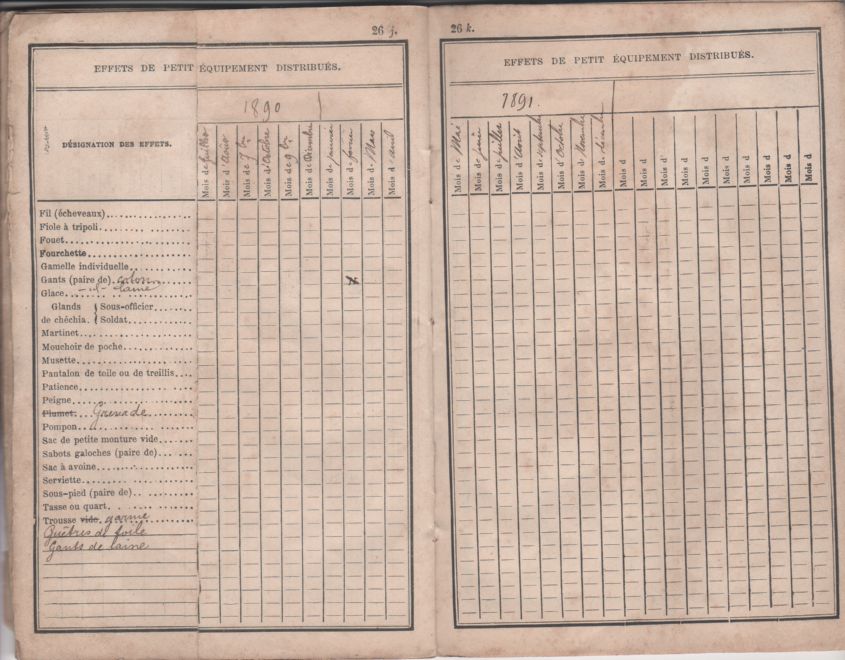 26 j.
EFFETS DE PETIT ÉQUIPEMENT DISTRIBUÉS.
1890
DÉSIGNATION DES EFFETS.
Mois de juillet
Mois d'Août
Mois de 7bre
Mois d'Octobre
Mois de 9bre
Mois de Décembre
Mois de janvier
Mois de février
Mois de Mars
Mois d'avril
Fil (écheveaux)
Fiole à tripoli
Fouet
Fourchette
Gamelle individuelle
Gants (paire de) coton
Glace -id- laine
Glands Sous-officier
de chéchia. Soldat
Martinet
Mouchoir de poche
Musette
Pantalon de toile ou de treillis
Patience
Peigne
Plumet. Grenade
Pompon
Sac de petite monture vide
Sabots galoches (paire de)
Sac à avoine
Serviette
Sous-pied (paire de)
Tasse ou quart
Trousse vide. garnie
Guêtres de toile
Gants de laine
26 k.
EFFETS DE PETIT ÉQUIPEMENT DISTRIBUÉS.
1891.
Mois de Mai
Mois de juin
Mois de juillet
Mois d'Août
Mois de septembre
Mois d'Octobre
Mois de Novembre
Mois de décembre
Mois d
Mois d
Mois d
Mois d
Mois d
Mois d
Mois d
Mois d
Mois d